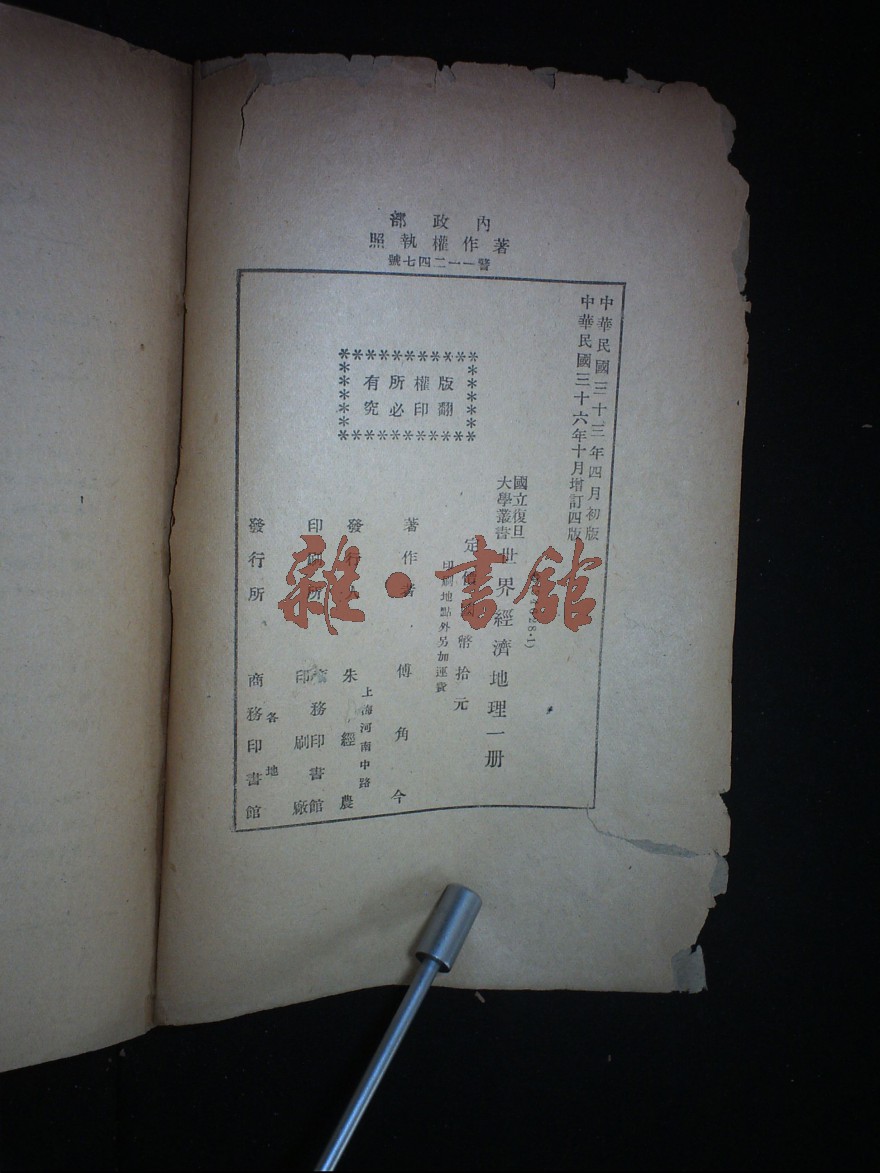 內政部
著作權執照
警一一二四七號
中華民國三十三年四月初版
中華民國三十六年十月增訂四版
版權所有
翻印必究
國立復旦
大學叢書
世界經濟地理一冊
定價國幣拾元
印刷地點外另加運費
著作者 傅角今
發行人 朱經農
上海河南中路
印刷所 商務印書館
印刷廠
發行所 商務印書館
各地
雜·書館